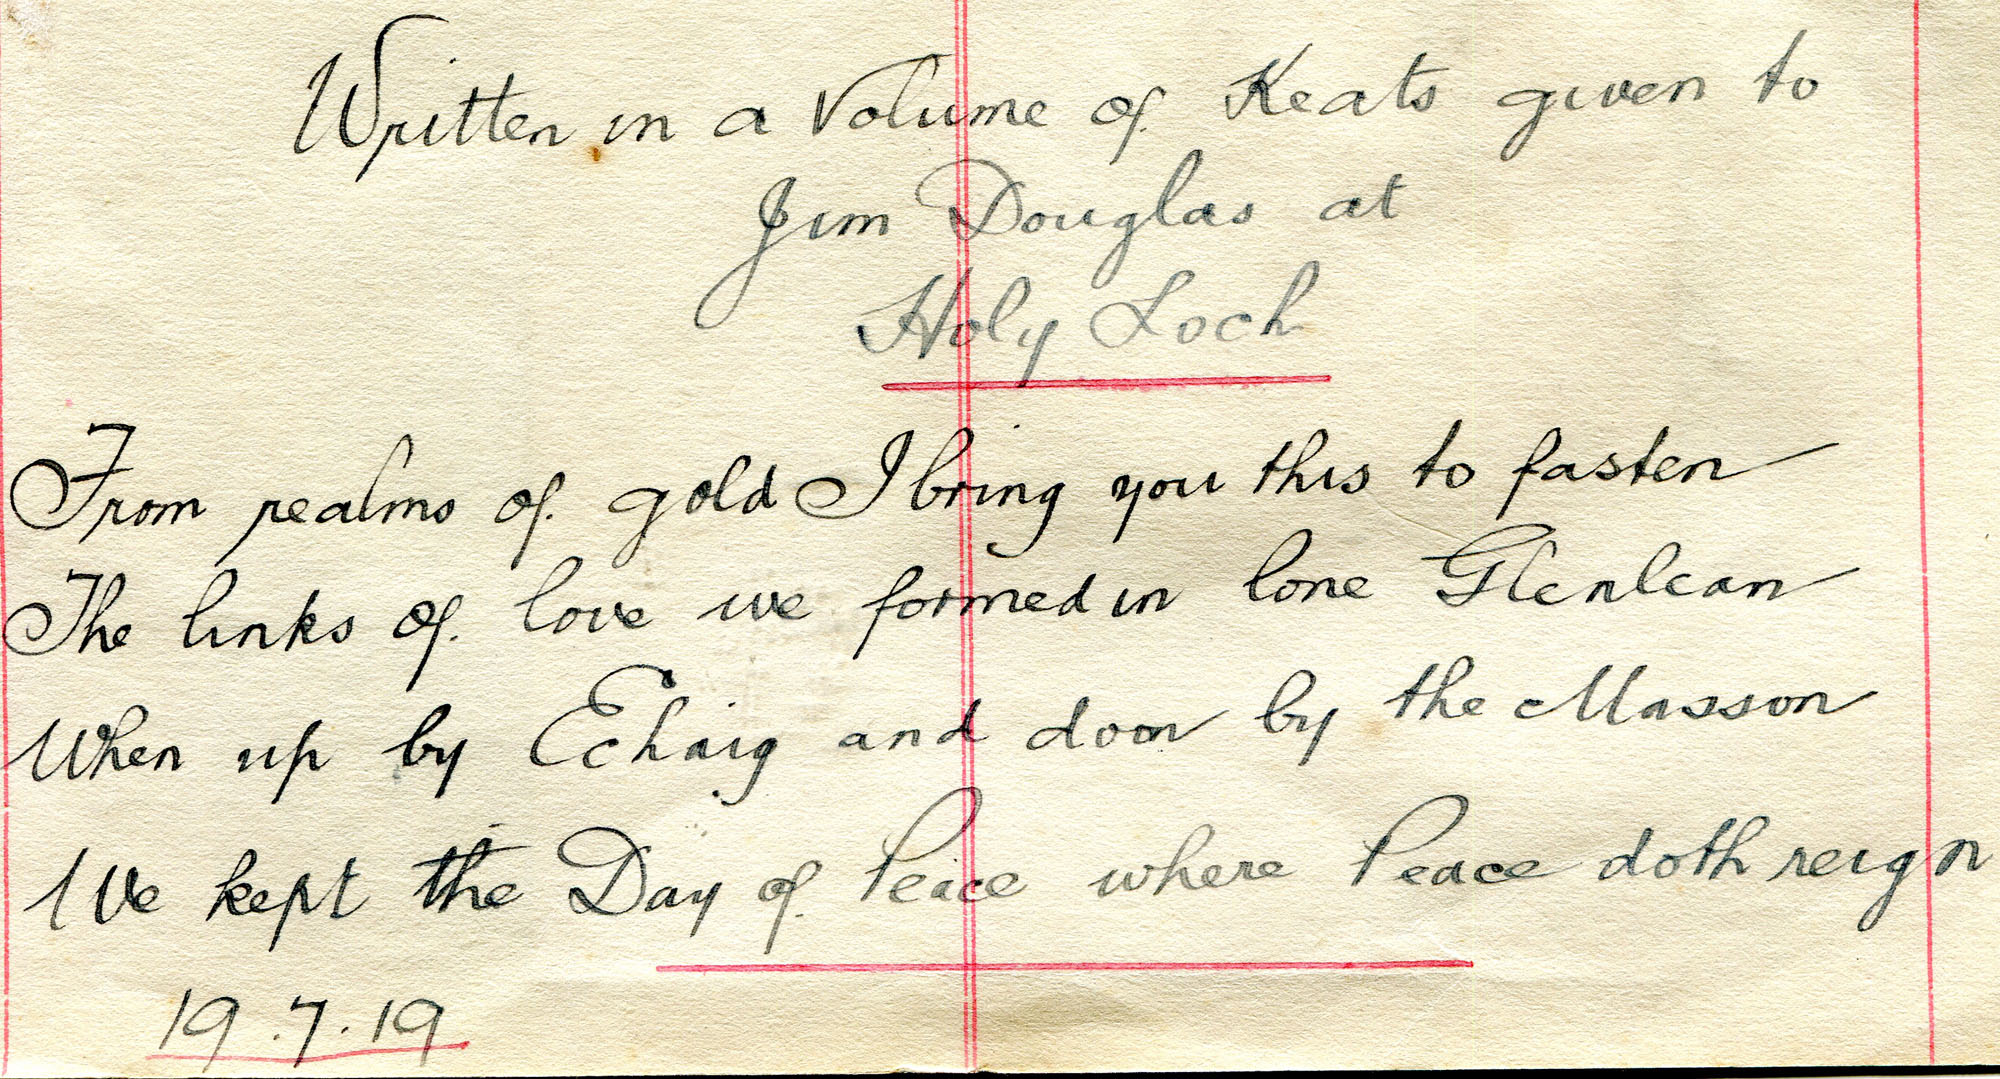 Written in a Volume of Keats given to
Jim Douglas at
Holy Loch
From realms of gold I bring you this to fasten
The links of love we formed in lone Glenlean
When up by Echaig and doon by the Masson
We kept the Day of Peace where Peace doth reign
19.7.19